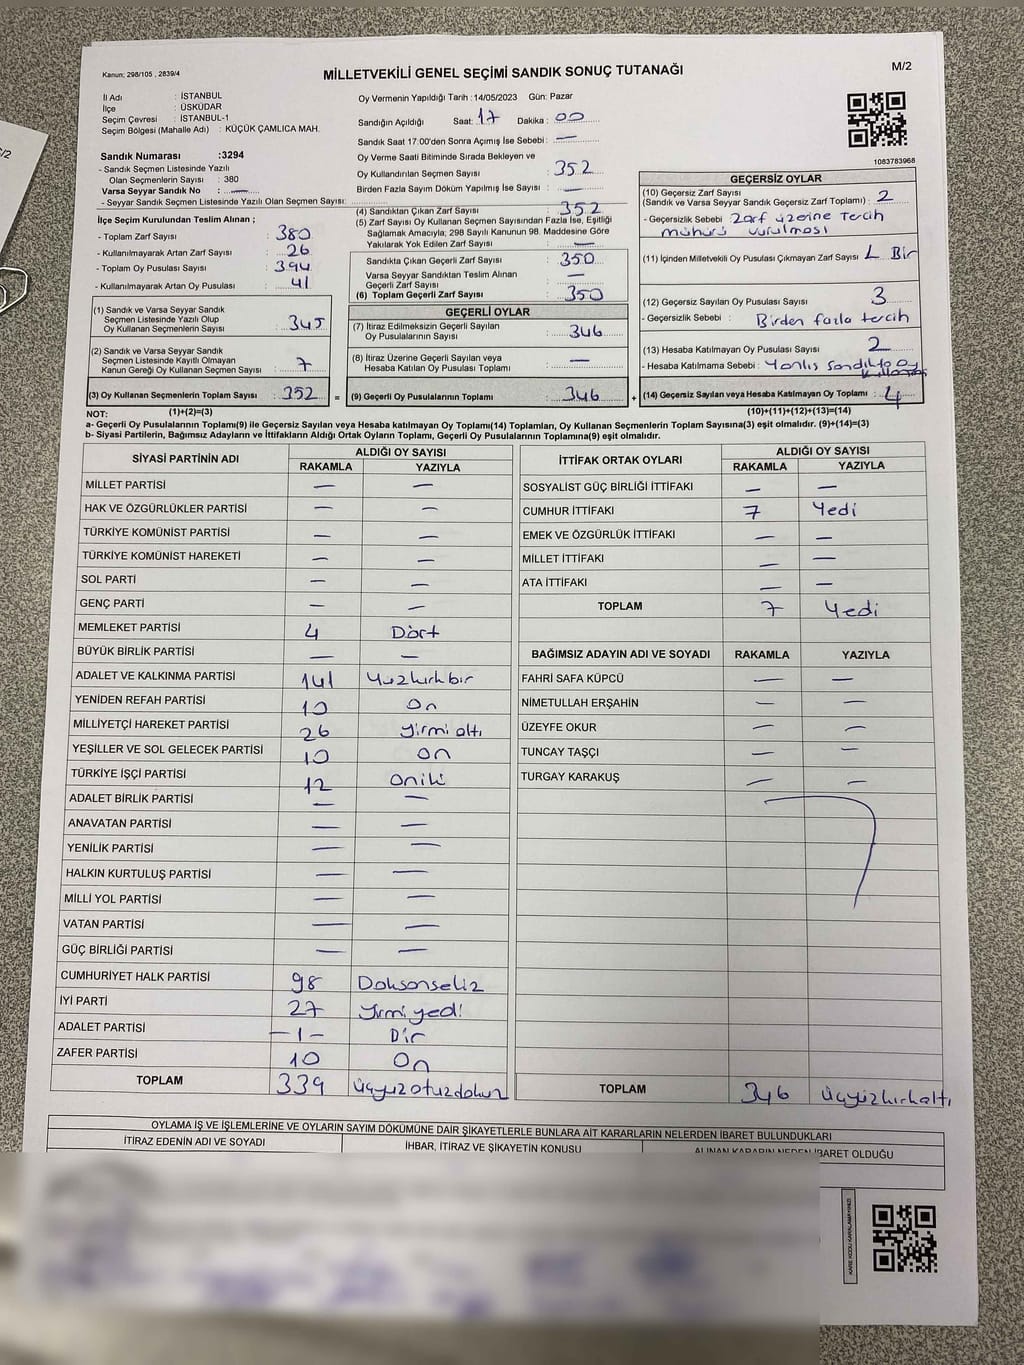 Kanun; 298/105 , 2839/4
MİLLETVEKİLİ GENEL SEÇİMİ SANDIK SONUÇ TUTANAĞI
M/2
İl Adı : İSTANBUL
İlçe : ÜSKÜDAR
Seçim Çevresi : İSTANBUL-1
Seçim Bölgesi (Mahalle Adı) : KÜÇÜK ÇAMLICA MAH.
Sandık Numarası :3294
- Sandık Seçmen Listesinde Yazılı
Olan Seçmenlerin Sayısı : 380
Varsa Seyyar Sandık No : —
- Seyyar Sandık Seçmen Listesinde Yazılı Olan Seçmen Sayısı:
Oy Vermenin Yapıldığı Tarih :14/05/2023 Gün: Pazar
Sandığın Açıldığı Saat: 17 Dakika : 00
Sandık Saat 17:00'den Sonra Açımış İse Sebebi: —
Oy Verme Saati Bitiminde Sırada Bekleyen ve
Oy Kullandırılan Seçmen Sayısı : 352
Birden Fazla Sayım Döküm Yapılmış İse Sayısı : —
1083783968
İlçe Seçim Kurulundan Teslim Alınan ;
- Toplam Zarf Sayısı : 380
- Kullanılmayarak Artan Zarf Sayısı : 26
- Toplam Oy Pusulası Sayısı : 394
- Kullanılmayarak Artan Oy Pusulası : 41
(1) Sandık ve Varsa Seyyar Sandık
Seçmen Listesinde Yazılı Olup
Oy Kullanan Seçmenlerin Sayısı : 345
(2) Sandık ve Varsa Seyyar Sandık
Seçmen Listesinde Kayıtlı Olmayan
Kanun Gereği Oy Kullanan Seçmen Sayısı : 7
(3) Oy Kullanan Seçmenlerin Toplam Sayısı : 352 =
(4) Sandıktan Çıkan Zarf Sayısı : 352
(5) Zarf Sayısı Oy Kullanan Seçmen Sayısından Fazla İse, Eşitliği
Sağlamak Amacıyla; 298 Sayılı Kanunun 98. Maddesine Göre
Yakılarak Yok Edilen Zarf Sayısı : —
Sandıkta Çıkan Geçerli Zarf Sayısı : 350
Varsa Seyyar Sandıktan Teslim Alınan
Geçerli Zarf Sayısı : —
(6) Toplam Geçerli Zarf Sayısı : 350
GEÇERLİ OYLAR
(7) İtiraz Edilmeksizin Geçerli Sayılan
Oy Pusulalarının Sayısı : 346
(8) İtiraz Üzerine Geçerli Sayılan veya
Hesaba Katılan Oy Pusulaları Toplamı : —
(9) Geçerli Oy Pusulalarının Toplamı : 346 +
GEÇERSİZ OYLAR
(10) Geçersiz Zarf Sayısı
(Sandık ve Varsa Seyyar Sandık Geçersiz Zarf Toplamı) : 2
- Geçersizlik Sebebi : Zarf üzerine tercih
mührü vurulması
(11) İçinden Milletvekili Oy Pusulası Çıkmayan Zarf Sayısı : 1 Bir
(12) Geçersiz Sayılan Oy Pusulası Sayısı : 3
- Geçersizlik Sebebi : Birden fazla tercih
(13) Hesaba Katılmayan Oy Pusulası Sayısı : 2
- Hesaba Katılmama Sebebi : Yanlış sandıkta oy
(14) Geçersiz Sayılan veya Hesaba Katılmayan Oy Toplamı : 4
NOT: (1)+(2)=(3)
(10)+(11)+(12)+(13)=(14)
a- Geçerli Oy Pusulalarının Toplamı(9) ile Geçersiz Sayılan veya Hesaba katılmayan Oy Toplamı(14) Toplamları, Oy Kullanan Seçmenlerin Toplam Sayısına(3) eşit olmalıdır. (9)+(14)=(3)
b- Siyasi Partilerin, Bağımsız Adayların ve İttifakların Aldığı Ortak Oyların Toplamı, Geçerli Oy Pusulalarının Toplamına(9) eşit olmalıdır.
SİYASİ PARTİNİN ADI ALDIĞI OY SAYISI
RAKAMLA YAZIYLA
MİLLET PARTİSİ — —
HAK VE ÖZGÜRLÜKLER PARTİSİ — —
TÜRKİYE KOMÜNİST PARTİSİ — —
TÜRKİYE KOMÜNİST HAREKETİ — —
SOL PARTİ — —
GENÇ PARTİ — —
MEMLEKET PARTİSİ 4 Dört
BÜYÜK BİRLİK PARTİSİ — —
ADALET VE KALKINMA PARTİSİ 141 Yüzkırkbir
YENİDEN REFAH PARTİSİ 10 On
MİLLİYETÇİ HAREKET PARTİSİ 26 Yirmi altı
YEŞİLLER VE SOL GELECEK PARTİSİ 10 On
TÜRKİYE İŞÇİ PARTİSİ 12 Oniki
ADALET BİRLİK PARTİSİ — —
ANAVATAN PARTİSİ — —
YENİLİK PARTİSİ — —
HALKIN KURTULUŞ PARTİSİ — —
MİLLİ YOL PARTİSİ — —
VATAN PARTİSİ — —
GÜÇ BİRLİĞİ PARTİSİ — —
CUMHURİYET HALK PARTİSİ 98 Doksansekiz
İYİ PARTİ 27 Yirmi yedi
ADALET PARTİSİ —1— Bir
ZAFER PARTİSİ 10 On
TOPLAM 339 üçyüzotuzdokuz
İTTİFAK ORTAK OYLARI ALDIĞI OY SAYISI
RAKAMLA YAZIYLA
SOSYALİST GÜÇ BİRLİĞİ İTTİFAKI — —
CUMHUR İTTİFAKI 7 Yedi
EMEK VE ÖZGÜRLÜK İTTİFAKI — —
MİLLET İTTİFAKI — —
ATA İTTİFAKI — —
TOPLAM 7 Yedi
BAĞIMSIZ ADAYIN ADI VE SOYADI RAKAMLA YAZIYLA
FAHRİ SAFA KÜPCÜ — —
NİMETULLAH ERŞAHİN — —
ÜZEYFE OKUR — —
TUNCAY TAŞÇI — —
TURGAY KARAKUŞ — —
TOPLAM 346 üçyüzkırkaltı
OYLAMA İŞ VE İŞLEMLERİNE VE OYLARIN SAYIM DÖKÜMÜNE DAİR ŞİKAYETLERLE BUNLARA AİT KARARLARIN NELERDEN İBARET BULUNDUKLARI
İTİRAZ EDENİN ADI VE SOYADI İHBAR, İTİRAZ VE ŞİKAYETİN KONUSU ALINAN KARARIN NEDEN İBARET OLDUĞU
KARE KODU KARALAMAYINIZ!